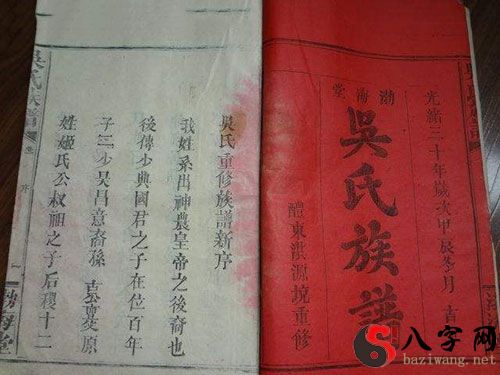 光緒三十年歲次甲辰冬月 吉
渤海堂
吳氏族譜
醴東洪源境重修
吳氏重修族譜新序
我姓系出神農皇帝之後裔也
後傳少典國君之子在位百年
子二少昊昌意裔孫 原
姓姬氏公叔祖之子后稷十二
吳氏族譜 序 一 渤海堂
八字网
baziwang.net